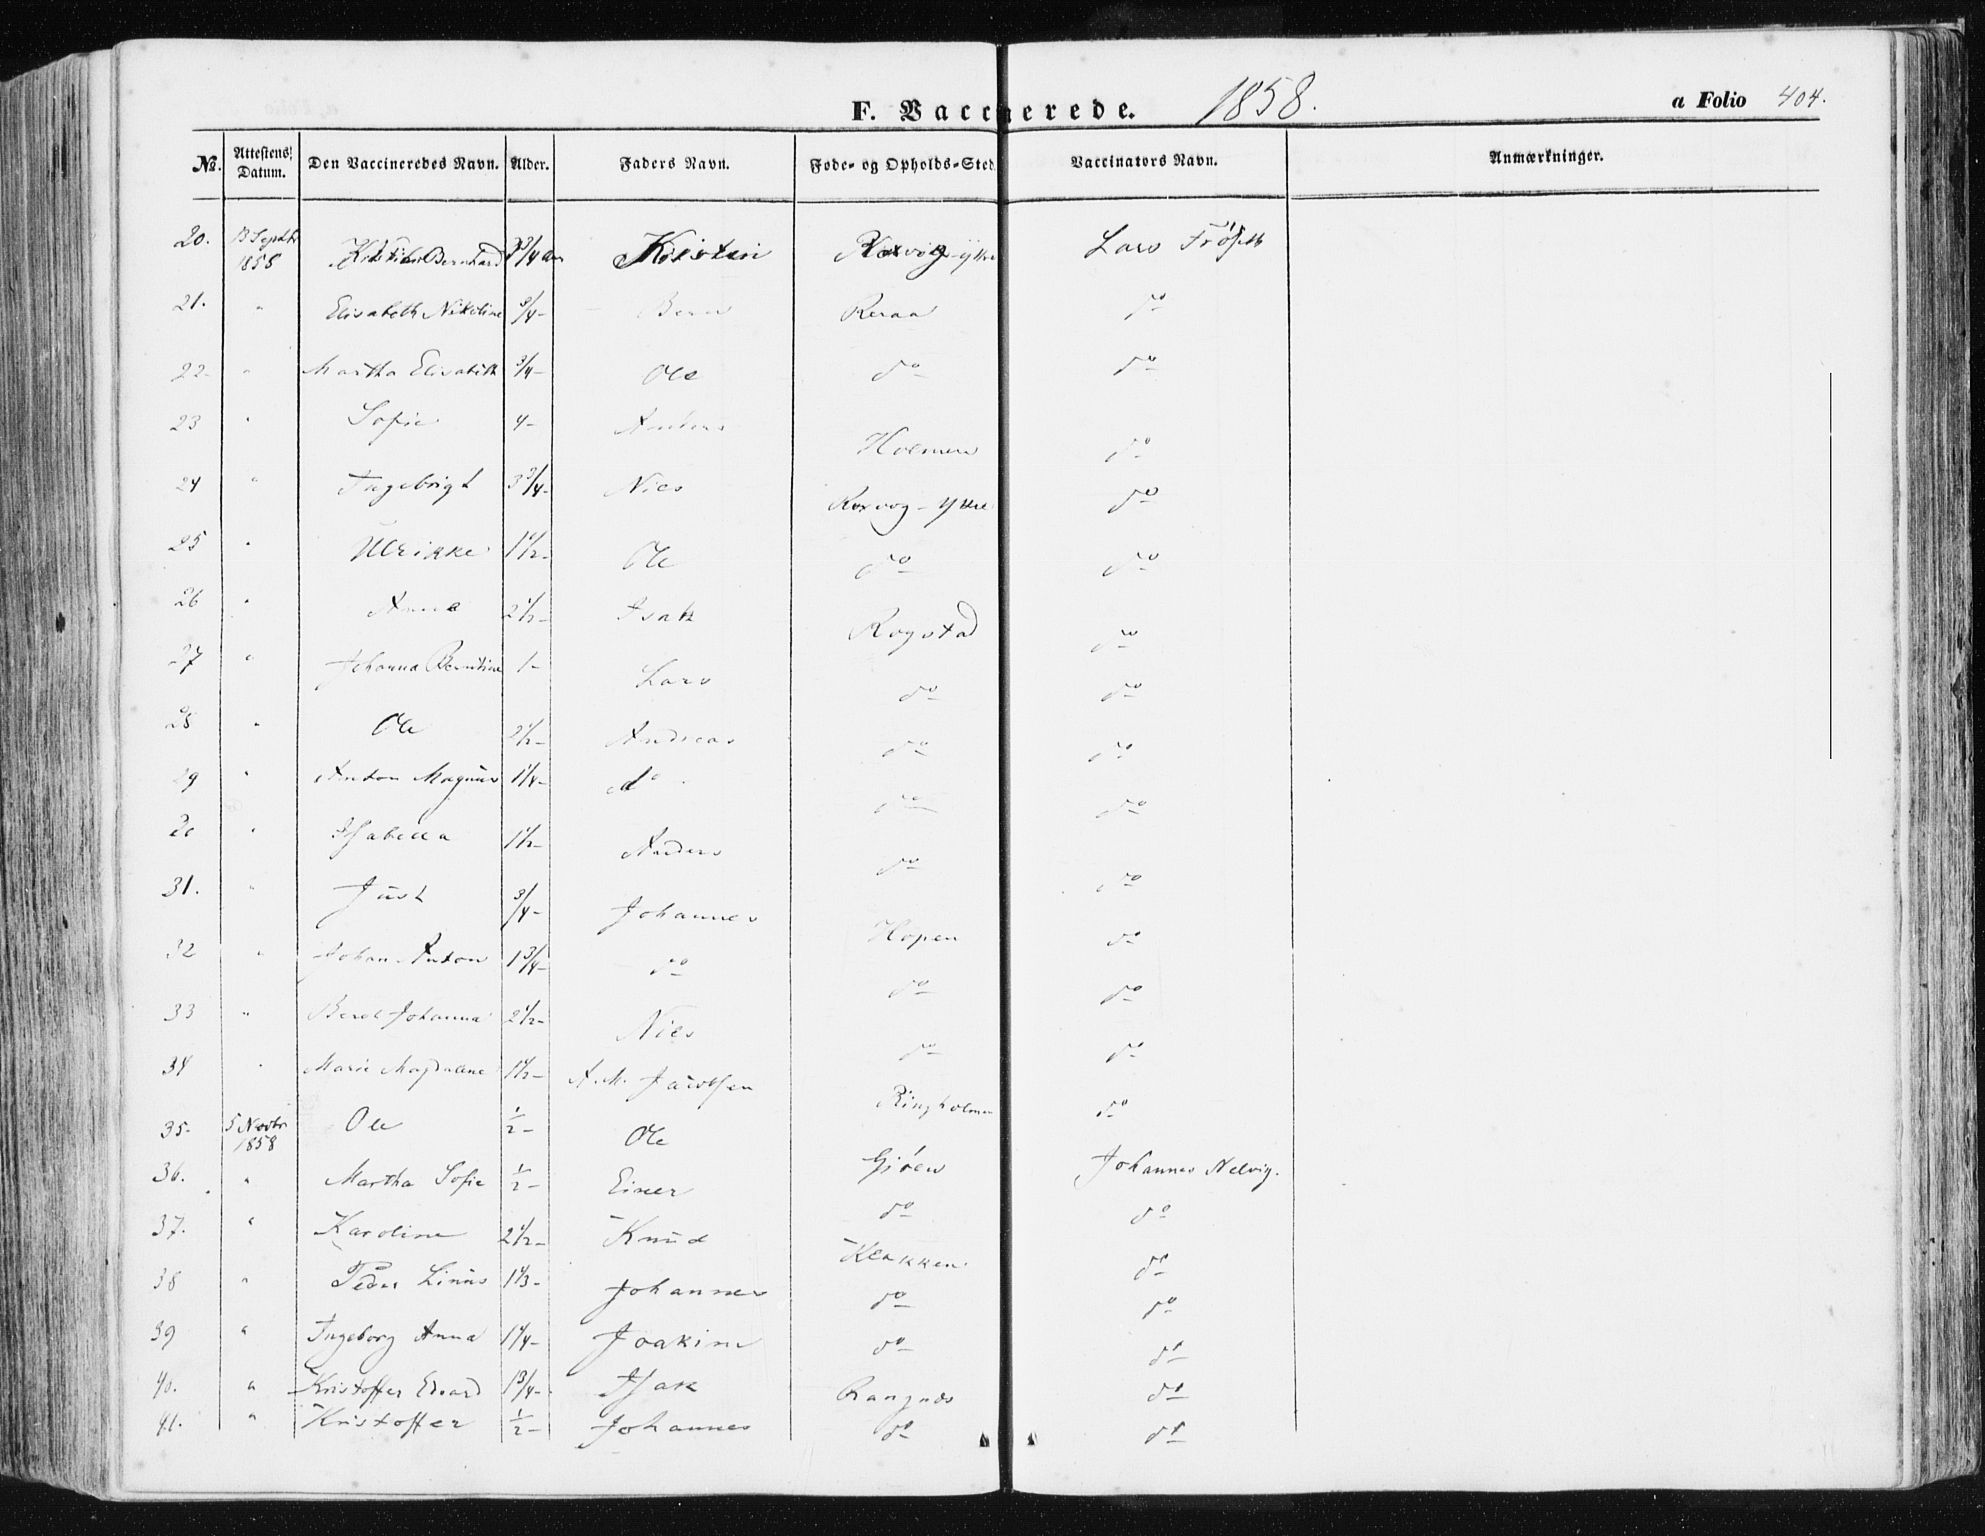 F. Vaccinerede. 1858. a Folio 404.
No. Attestens Datum. Den Vaccineredes Navn. Alder. Faders Navn. Føde- og Opholds-Sted Vaccinators Navn. Anmærkninger.
20. 13 Septbr 1858 Bernhard 3/4 Aar Kristen Ytre Lars Frøseth
21. " Elisabeth Nikoline 3/4 - Beraa do
22 " Martha Elisabeth 3/4 - Ole do do
23 " Sofie 4 - Anders Holmen do
24 " Ingebrigt 3 3/4 - Nils Korvog - Ytre do
25 " Ulrikke 1 1/2 - Ole do do
26 " Anne 2 1/2 - Isak Rogstad do
27 " Johanna Berntine 1 - Lars do do
28 " Ole 2 1/2 - Andreas do do
29 " Anton Magnus 1 1/4 - do do do
30 " Isabella 1 1/2 - Anders do do
31. " Just 3/4 - Johannes Hopen do
32 " Johan Anton 1 3/4 - do do do
33 " Beret Johanna 2 1/2 - Nils do do
34 " Marie Magdalene 1 1/2 - A. M. Jacobsen Ringholmen do
35. 5 Novbr 1858 Ole 1/2 - Ole Gjøen Johannes Nelvig.
36. " Martha Sofie 1/2 - Einer do do
37. " Karoline 2 1/2 - Knud Klakken do
38 " Peder Linus 1 1/3 - Johannes do do
39 " Ingeborg Anna 1 1/4 - Joakim do do
40. " Kristoffer Edvard 1 3/4 - Isak Rangnæs do
41. " Kristoffer 1/2 - Johannes do do